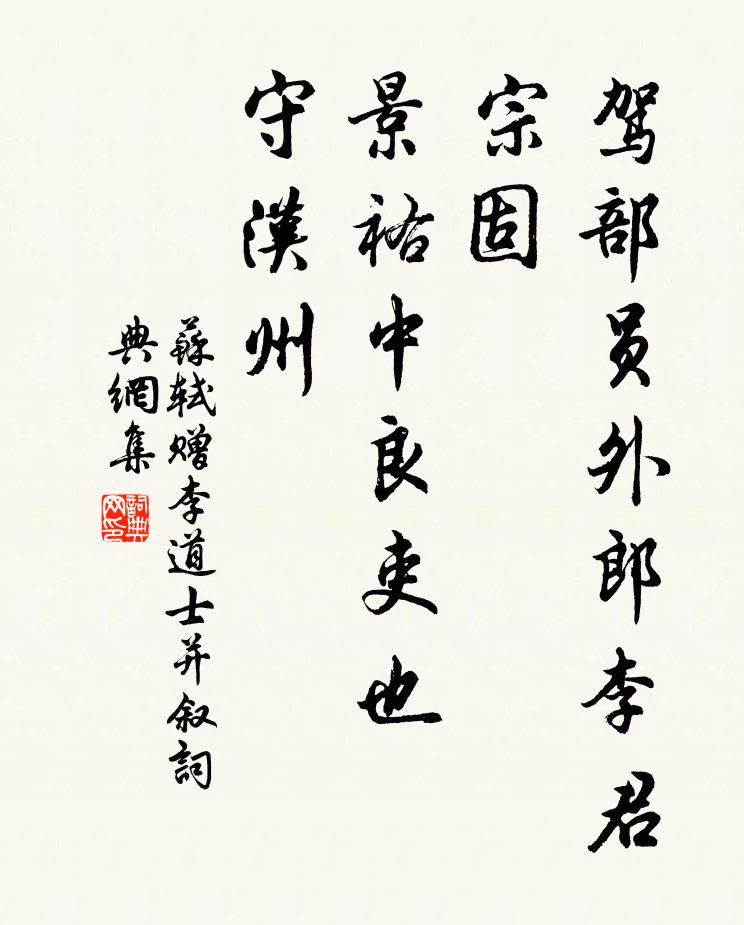 驾部员外郎李君
宗固
景祐中良吏也
守漢州
蘇軾赠李道士并叙詞
典網集
詞典
网印